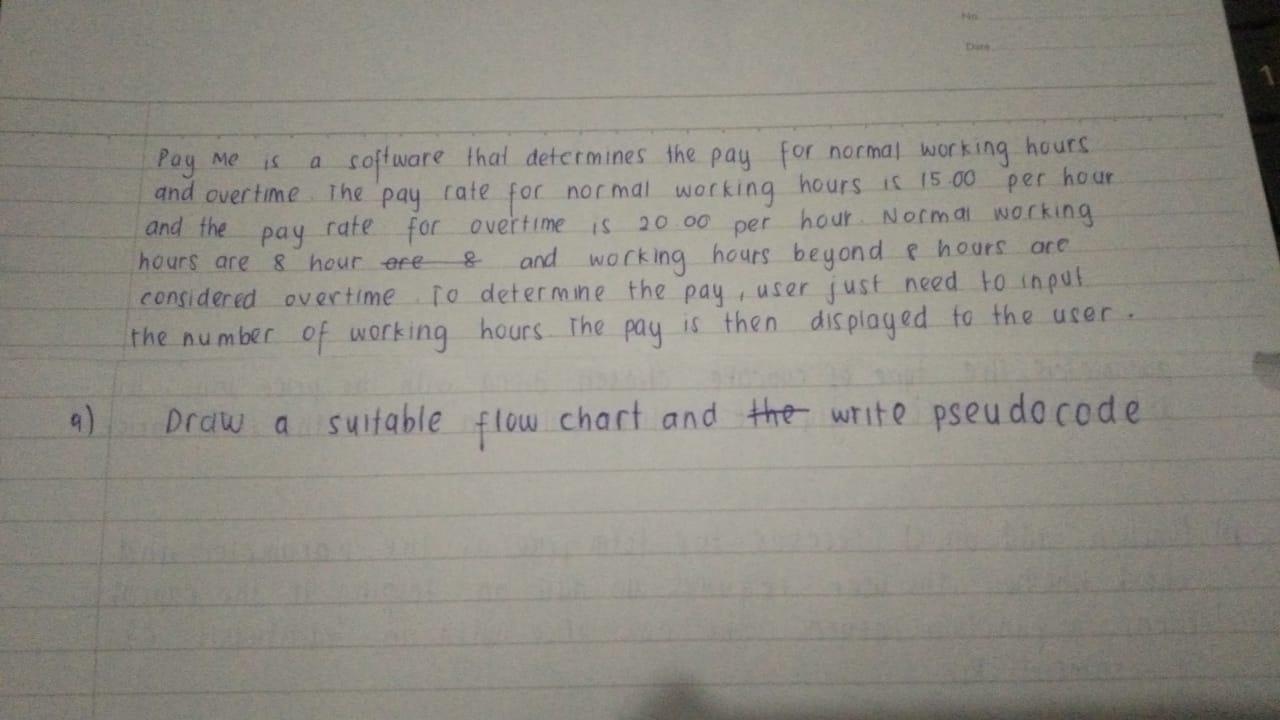 No.
Date
1
Pay Me is a software that determines the pay for normal working hours
and overtime. The pay rate for normal working hours is 15.00 per hour
and the pay rate for overtime is 20.00 per hour. Normal working
hours are 8 hour are 8 and working hours beyond 8 hours are
considered overtime. To determine the pay, user just need to input
the number of working hours. The pay is then displayed to the user.
a) Draw a suitable flow chart and the write pseudocode